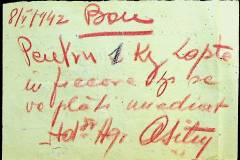 8/I 1942 Bon
Pentru 1 Kg lapte
in fiecare zi se
va plăti imediat
Adtor Agr.